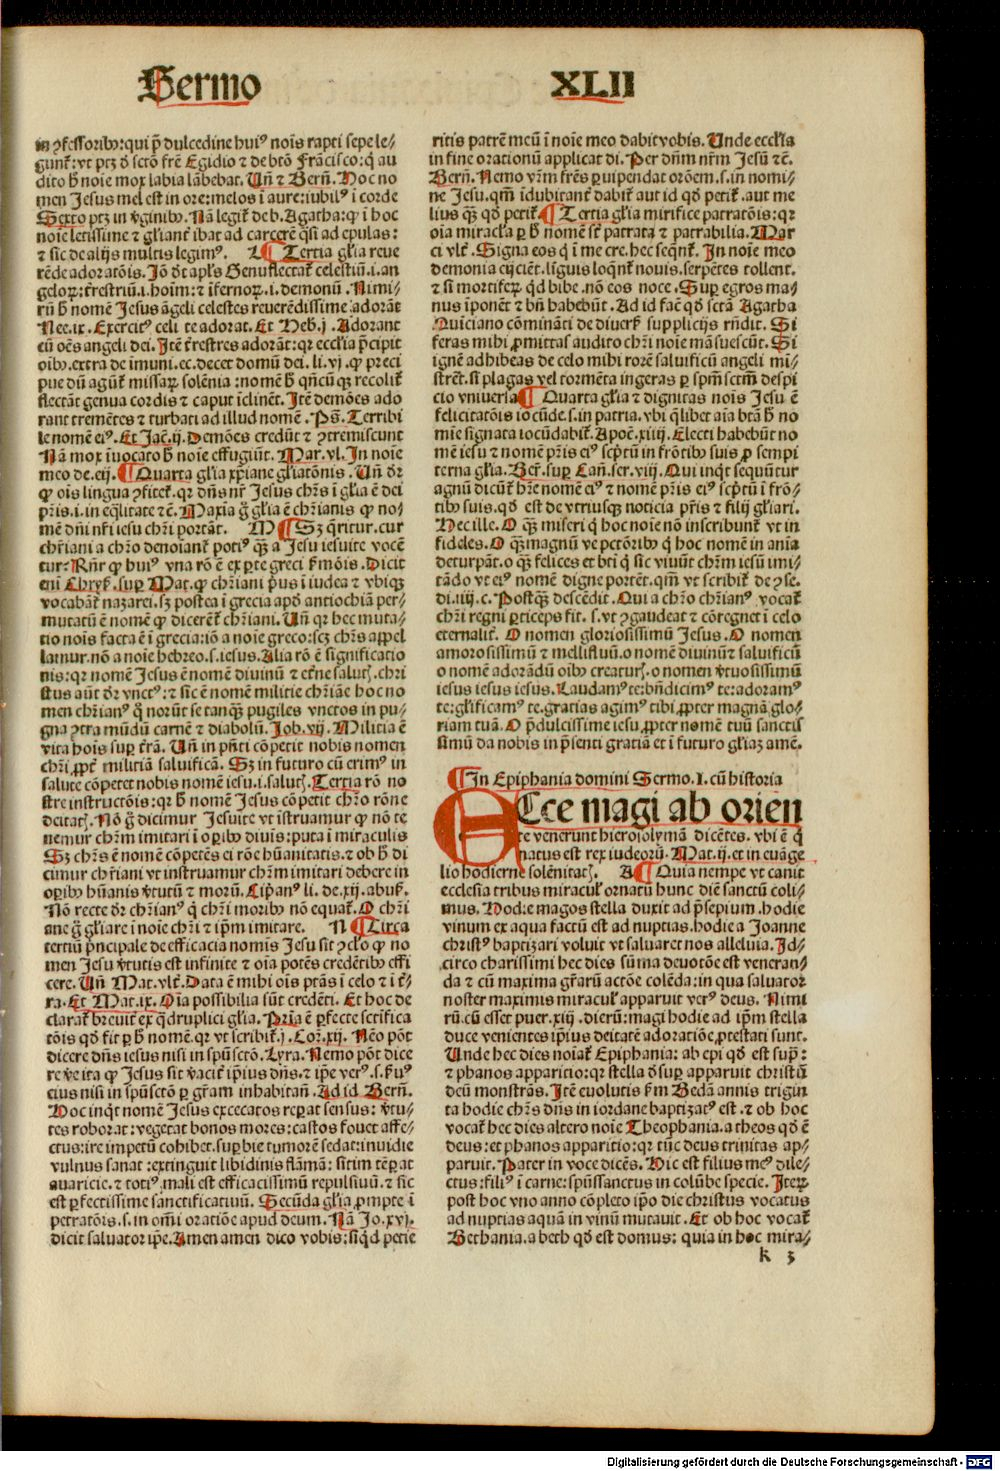 Sermo XLII
in ꝯfessoribꝰ: qui p̄ dulcedine huiꝰ nois rapti sepe le⸗
gunt̃: vt ptz d̕ scto frē Egidio ⁊ de btō Frācisco: q̄ au
dito h̄ noie mox labia lābebat. Uñ ⁊ Berñ. Hoc no
men Jesus mel est in ore: melos ĩ aure: iubilꝰ ĩ corde
Sexto ptz in v̓ginibꝰ. Nā legit̃ de b. Agatha: ꝙ ĩ hoc
noie letissime ⁊ gl̃iant̃ ibat ad carcerē q̃si ad epulas:
⁊ sic de alijs multis legimꝰ. L ¶ Tertia gl̃ia reue
rēde adoratōis. Jō d̕t apl̃s Genuflectat̃ celestiū .i. an
geloꝝ: t̃restriū .i. hoim: ⁊ ĩfernoꝝ .i. demonū. Nimi⸗
rū h̄ nomē Jesus āgeli celestes reuerēdissime adorāt
Nee. ix. Exercitꝰ celi te adorat. Et Heb. j. Adorant
eū oēs angeli dei. Jtē t̃restres adorāt: qꝛ eccl̃ia p̄cipit
oibꝰ. extra de ĩmuni. ec. decet domū dei. li. vj. ꝙ preci
pue dū agūt̃ missaꝝ solēnia: nomē h̄ qñcūqꝫ recolit̃
flectāt genua cordis ⁊ caput ĩclinēt. Jtē demōes ado
rant tremētes ⁊ turbati ad illud nomē. Ps̄. Terribi
le nomē eiꝰ. Et Jac̄. ij. Demōes credūt ⁊ ꝯtremiscunt
Nā mox ĩuocato h̄ noie effugiūt. Mar. vl. Jn noie
meo de. eij. ¶ Quarta gl̃ia xp̄iane gl̃iatōnis. Uñ d̕r
ꝙ ois lingua ꝯfitet̃. qꝛ dñs nr̄ Jesus chr̄s ĩ gl̃ia ē dei
pr̄is. i. in eq̄litate ⁊ē. Maxīa g̊ gl̃ia ē chr̄ianis ꝙ no⸗
mē dñi nr̄i iesu chr̄i portāt. M ¶ Sꝫ q̄ritur. cur
chr̄iani a chr̄o denoiant̃ potiꝰ q̄ꝫ a Jesu iesuite vocē
tur: Rñr ꝙ huiꝰ vna rō ē ex p̱te greci ẜmōis. Dicit
eni Chryẜ. suꝑ Mat. ꝙ chr̄iani p̄us ĩ iudea ⁊ vbiqꝫ
vocabāt̃ nazarei. sꝫ postea ĩ grecia apd̓ antiochiā per⸗
mutatū ē nomē ꝙ dicerēt̃ chr̄iani. Uñ qꝛ hec muta⸗
tio nois facta ē ĩ grecia: iō a noie greco: scꝫ chr̄s appel
lamur. nō a noie hebreo .s. iesus. Alia rō ē significatio
nis: qꝛ nomē Jesus ē nomē diuinū ⁊ et̓ne salutꝭ. chri
stus aūt d̕r vnctꝰ: ⁊ sic ē nomē militie chr̄iāe hoc no
men chr̄ianꝰ q̄ norūt se tanq̄ꝫ pugiles vnctos in pu⸗
gna ꝯtra mūdū carnē ⁊ diabolū. Job. vij. Militia ē
vita hois suꝑ t̓rā. Uñ in pñti cōpetit nobis nomen
chr̄i ꝓpt̓ militiā saluificā. Sꝫ in futuro cū erimꝰ in
salute cōpetet nobis nomē iesu .i. salutꝭ. Tertia rō no
stre instructōis: qꝛ h̄ nomē Jesus cōpetit chr̄o rōne
deitatꝭ. Nō g̊ dicimur Jesuite vt īstruamur ꝙ nō te
nemur chr̄m imitari ĩ oꝑibꝰ diuis: puta ĩ miraculis
Sꝫ chr̄s ē nomē cōpetēs ei rōe hūanitatis. ⁊ ob h̄ di
cimur chr̄iani vt instruamur chr̄m imitari debere in
oꝑibꝰ hūanis v̓tutū ⁊ morū. Cip̄anꝰ li. de. xij. abuẜ.
Nō recte d̕r chr̄ianꝰ q̄ chr̄i moribꝰ nō equat̃. O chr̄i
ane g̊ gl̃iare ĩ noie chr̄i ⁊ ip̄m imitare. N ¶ Circa
tertiū p̄ncipale de efficacia nomis Jesu sit ꝯclo ꝙ no
men Jesu v̓tutis est infinite ⁊ oīa potēs credētibꝰ effi
cere. Uñ Mat. vlt̃. Data ē mihi ois ptās ĩ celo ⁊ ĩ t̓⸗
ra. Et Mat. ix. Oīa possibilia sūt credēti. Et hoc de
clarat̃ breuit̓ ex q̄druplici gl̃ia. Pria ē ꝑfecte sctifica
tōis qd̓ fit ꝑ h̄ nomē. qꝛ vt scribit̃. j. Cor. xij. Nēo pōt
dicere dñs iesus nisi in spū sctō. Lyra. Nemo pōt dice
re v̓e ita ꝙ Jesus sit v̓acit̓ ip̄ius dñs. ⁊ ip̄e ver̓ .s. ẜuꝰ
eius nisi in spūsctō ꝑ gr̄am inhabitañ. Ad id Berñ.
Hoc inqt nomē Jesus excecatos reꝑat sensus: v̓tu⸗
tes roborat: vegetat bonos mores: castos fouet affe⸗
ctus: ire impetū cohibet. suꝑbie tumorē sedat: inuidie
vulnus sanat: extinguit libidinis flāmā: sitim tēꝑat
auaricie. ⁊ totiꝰ mali est efficacissimū repulsiuū. ⁊ sic
est ꝑfectissime sanctificatiuū. Secūda gl̃ia ꝓmpte ĩ
petratōis. s. in omī oratiōe apud deum. Nā Jo. xvj.
dicit saluator ip̄e. Amen amen dico vobis: siq̄d petie
ritis patrē meū ĩ noie meo dabit vobis. Unde eccl̃ia
in fine orationū applicat di. Per dñm nr̄m Jesū ⁊ē.
Berñ. Nemo vr̄m frēs ꝑuipendat orōem .s. in nomi⸗
ne Jesu. qm̄ ĩdubitant̓ dabit̃ aut id qd̓ petit̃. aut me
lius q̄ꝫ qd̓ petit̃. ¶ Tertia gl̃ia mirifice patratōis: qꝛ
oīa miracl̃a ꝑ h̄ nomē st̃ patrata ⁊ patrabilia. Mar
ci vlt̃. Signa eos q̄ ĩ me cre. hec seq̄nt̃. Jn noie meo
demonia eijciēt. līguis loq̄nt̃ nouis. serpētes tollent.
⁊ si mortiferꝝ qd̓ bibe. nō eos noce. Suꝑ egros ma⸗
nus īponēt ⁊ bñ habebūt. Ad id facē qd̓ sctā Agatha
Quīciano cōmināti de diuerẜ supplicijs rñdit. Si
feras mihi ꝓmittas audito chr̄i noie māsuescūt. Si
ignē adhibeas de celo mihi rorē saluificū angeli mi⸗
strēt. si plagas vel tormēta ingeras ꝑ sp̄m sctm̄ despi
cio vniuersa ¶ Quarta gl̃ia ⁊ dignitas nois Jesu ē
felicitatōis iocūde. s. in patria. vbi q̄libet aīa btā h̄ no
mīe signata iocūdabit̃. Apoc̄. xiiij. Electi habebūt no
mē iesu ⁊ nomē pr̄is eiꝰ scp̄tū in frōtibꝰ suis ꝓ sempi
terna gl̃ia. Ber̄. suꝑ Cañ. ser. viij. Qui inqt sequūtur
agnū dicūt̃ hr̄e nomē eiꝰ ⁊ nomē pr̄is eiꝰ scp̄tū ĩ frō⸗
tibꝰ suis. qd̓ est de vtriusqꝫ noticia pr̄is ⁊ filij gl̃iari.
Hec ille. O q̄ꝫ miseri q̄ hoc noie nō inscribunt̃ vt in
fideles. O q̄ꝫ magnū ve pctōribꝰ q̄ hoc nomē in aīnia
deturpāt. o q̄ꝫ felices et btī q̄ sic viuūt chr̄m iesū imi⸗
tādo vt eiꝰ nomē digne portēt. qm̄ vt scribit̃ de ꝯse.
di. iiij. c. Postq̄ꝫ descēdit. Qui a chr̄o chr̄ianꝰ vocat̃
chr̄i regni ꝑticeps fit. s. vt ꝯgaudeat ⁊ cōregnet ĩ celo
eternalit̃. O nomen gloriosissimū Jesus. O nomen
amorosissimū ⁊ mellifluū. o nomē diuinū ⁊ saluificū
o nomē adorādū oibꝰ creaturꝭ. o nomen v̓tuosissimū
iesus iesus iesus. Laudamꝰ te: bñdicimꝰ te: adoramꝰ
te: gl̃ificamꝰ te. gratias agimꝰ tibi ꝓpter magnā glo⸗
riam tuā. O p̄dulcissime iesu ꝓpter nomē tuū sanctis
simū da nobis in p̄senti gratiā et ĩ futuro gl̃iaꝫ amē.
¶ Jn Epiphania domini Sermo. I. cū historia
ECce magi ab orien
te venerunt hierosolymā dicētes. vbi ē q̄
natus est rex iudeorū. Mat. ij. et in euāge
lio hodierne solēnitatꝭ. A ¶ Quia nempe vt canit
ecclesia tribus miracul̃ ornatū hunc diē sanctū coli⸗
mus. Hodie magos stella duxit ad p̄sepium. hodie
vinum ex aqua factū est ad nuptias. hodie a Joanne
christꝰ baptizari voluit vt saluaret nos alleluia. Jd⸗
circo charissimi hec dies sūma deuotōe est veneran⸗
da ⁊ cū maxima gr̄arū actōe colēda: in qua saluator
noster maximis miracul̃ apparuit verꝰ deus. Nimi
rū. cū esset puer. xiij. dierū: magi hodie ad ip̄m stella
duce venientes ip̄ius deitatē adoratiōe ꝓtestati sunt.
Unde hec dies noiat̃ Epiphania: ab epi qd̓ est supꝝ:
⁊ phanos apparitio: qꝛ stella d̓suꝑ apparuit christū
deū monstrās. Jtē euolutis ẜm Bedā annis trigin
ta hodie chr̄s dñs in iordane baptizatꝰ est. ⁊ ob hoc
vocat̃ hec dies altero noie Theophania. a theos qd̓ ē
deus: et phanos apparitio: qꝛ tūc deus trinitas ap⸗
paruit. Pater in voce dicēs. Hic est filius meꝰ dile⸗
ctus: filiꝰ ĩ carne: spūssanctus in colūbe specie. Jteꝝ
post hoc vno anno cōpleto ip̄o die christus vocatus
ad nuptias aquā in vinū mutauit. Et ob hoc vocat̃
Bethania. a beth qd̓ est domus: quia in hoc mira⸗
k 3
Digitalisierung gefördert durch die Deutsche Forschungsgemeinschaft - DFG